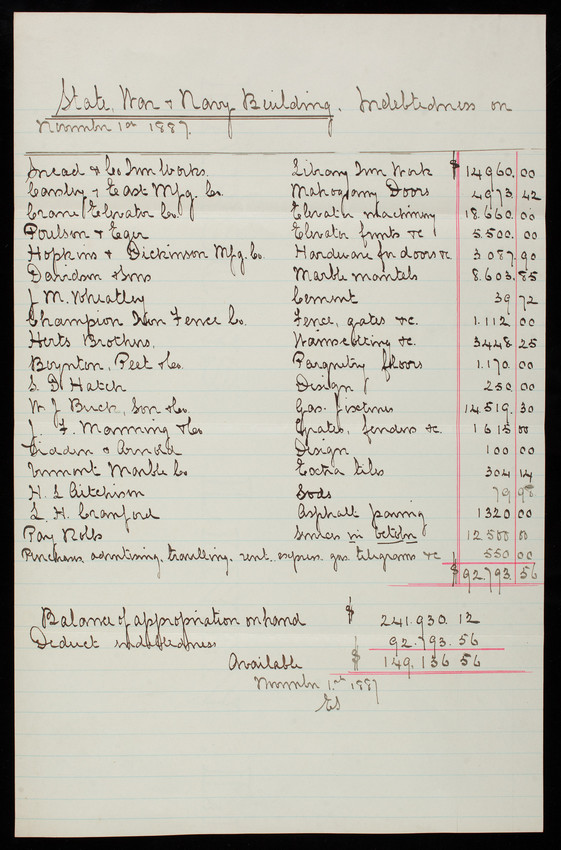 State, War & Navy Building. Indebtedness on
November 1st 1887.
Snead & Co Iron Works. Library Iron Work $ 14960.00
Cassidy & East Mfg. Co. Mahogany Doors 4973.42
Crane Elevator Co. Elevator machinery 18.660.00
Poulson & Eger Elevator fronts &c 5.500.00
Hopkins & Dickinson Mfg. Co. Hardware for doors &c 3087.90
Davidson & Sons Marble mantels 8.603.85
J. M. Wheatley Cement 39 72
Champion Iron Fence Co. Fence, gates &c. 1.112 00
Herts Brothers. Wainscotting &c. 3448.25
Boynton, Peet & Co. Parquetry floors 1.170.00
S. D. Hatch Design 250.00
W J Buck, Son & Co. Gas. fixtures 14.519.30
J. F. Manning & Co Grates, fenders &c. 1615 00
& Arnold Design 100 00
Vermont Marble Co Extra tiles 304 14
H. S. Aitchison Sods 79 98
L. H. Cranford Asphalt paving 1320 00
Pay Rolls Services in October 12500 00
Purchases, advertising, travelling, rent, expenses, gas, telegrams &c 550 00
$ 92.793.56
Balance of appropriation on hand $ 241.930.12
Deduct indebtedness 92.793.56
Available $ 149.136 56
November 1st 1887